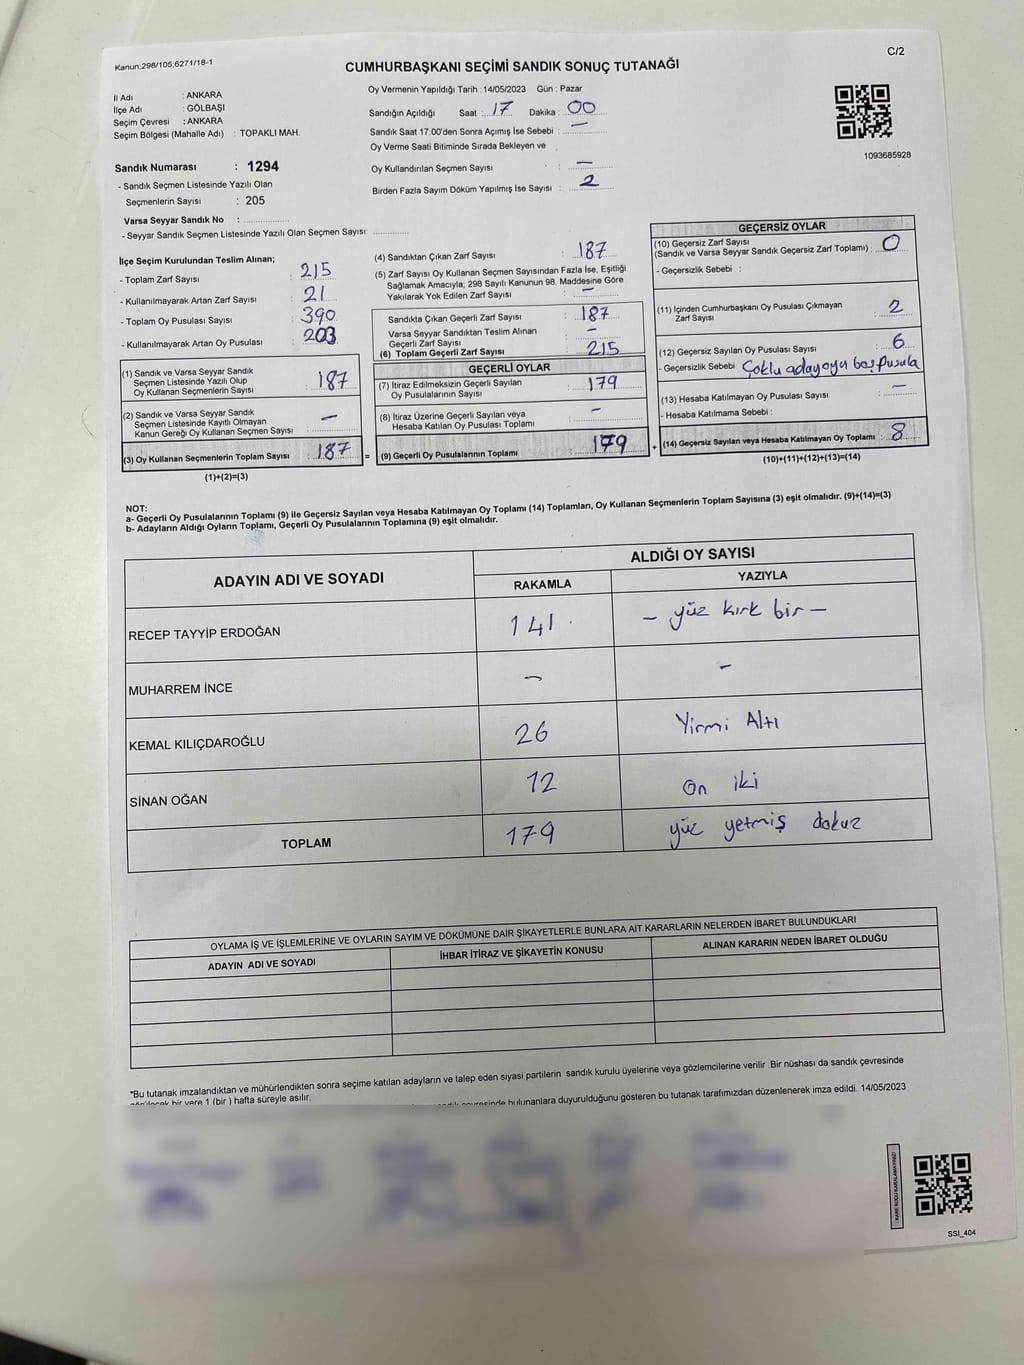 Kanun;298/105,6271/18-1
C/2
CUMHURBAŞKANI SEÇİMİ SANDIK SONUÇ TUTANAĞI
İl Adı : ANKARA
İlçe Adı : GÖLBAŞI
Seçim Çevresi : ANKARA
Seçim Bölgesi (Mahalle Adı) : TOPAKLI MAH.
Oy Vermenin Yapıldığı Tarih : 14/05/2023 Gün : Pazar
Sandığın Açıldığı Saat : 17 Dakika : 00
Sandık Saat 17:00'den Sonra Açımış İse Sebebi : –
Oy Verme Saati Bitiminde Sırada Bekleyen ve
Oy Kullandırılan Seçmen Sayısı : –
Birden Fazla Sayım Döküm Yapılmış İse Sayısı : 2
1093685928
Sandık Numarası : 1294
- Sandık Seçmen Listesinde Yazılı Olan
Seçmenlerin Sayısı : 205
Varsa Seyyar Sandık No :
- Seyyar Sandık Seçmen Listesinde Yazılı Olan Seçmen Sayısı:
İlçe Seçim Kurulundan Teslim Alınan;
- Toplam Zarf Sayısı : 215
- Kullanılmayarak Artan Zarf Sayısı : 21
- Toplam Oy Pusulası Sayısı : 390
- Kullanılmayarak Artan Oy Pusulası : 203
(1) Sandık ve Varsa Seyyar Sandık
Seçmen Listesinde Yazılı Olup
Oy Kullanan Seçmenlerin Sayısı : 187
(2) Sandık ve Varsa Seyyar Sandık
Seçmen Listesinde Kayıtlı Olmayan
Kanun Gereği Oy Kullanan Seçmen Sayısı : –
(3) Oy Kullanan Seçmenlerin Toplam Sayısı : 187 =
(1)+(2)=(3)
(4) Sandıktan Çıkan Zarf Sayısı : 187
(5) Zarf Sayısı Oy Kullanan Seçmen Sayısından Fazla İse, Eşitliği
Sağlamak Amacıyla; 298 Sayılı Kanunun 98. Maddesine Göre
Yakılarak Yok Edilen Zarf Sayısı : –
Sandıkta Çıkan Geçerli Zarf Sayısı : 187
Varsa Seyyar Sandıktan Teslim Alınan
Geçerli Zarf Sayısı : –
(6) Toplam Geçerli Zarf Sayısı : 215
GEÇERLİ OYLAR
(7) İtiraz Edilmeksizin Geçerli Sayılan
Oy Pusulalarının Sayısı : 179
(8) İtiraz Üzerine Geçerli Sayılan veya
Hesaba Katılan Oy Pusulası Toplamı : –
(9) Geçerli Oy Pusulalarının Toplamı : 179 +
GEÇERSİZ OYLAR
(10) Geçersiz Zarf Sayısı
(Sandık ve Varsa Seyyar Sandık Geçersiz Zarf Toplamı) : 0
- Geçersizlik Sebebi :
(11) İçinden Cumhurbaşkanı Oy Pusulası Çıkmayan
Zarf Sayısı : 2
(12) Geçersiz Sayılan Oy Pusulası Sayısı : 6
- Geçersizlik Sebebi Çoklu adaya oy boş pusula
(13) Hesaba Katılmayan Oy Pusulası Sayısı : –
- Hesaba Katılmama Sebebi :
(14) Geçersiz Sayılan veya Hesaba Katılmayan Oy Toplamı : 8
(10)+(11)+(12)+(13)=(14)
NOT:
a- Geçerli Oy Pusulalarının Toplamı (9) ile Geçersiz Sayılan veya Hesaba Katılmayan Oy Toplamı (14) Toplamları, Oy Kullanan Seçmenlerin Toplam Sayısına (3) eşit olmalıdır. (9)+(14)=(3)
b- Adayların Aldığı Oyların Toplamı, Geçerli Oy Pusulalarının Toplamına (9) eşit olmalıdır.
ADAYIN ADI VE SOYADI
ALDIĞI OY SAYISI
RAKAMLA YAZIYLA
RECEP TAYYİP ERDOĞAN 141 – yüz kırk bir –
MUHARREM İNCE – –
KEMAL KILIÇDAROĞLU 26 Yirmi Altı
SİNAN OĞAN 12 On iki
TOPLAM 179 yüz yetmiş dokuz
OYLAMA İŞ VE İŞLEMLERİNE VE OYLARIN SAYIM VE DÖKÜMÜNE DAİR ŞİKAYETLERLE BUNLARA AİT KARARLARIN NELERDEN İBARET BULUNDUKLARI
ADAYIN ADI VE SOYADI İHBAR İTİRAZ VE ŞİKAYETİN KONUSU ALINAN KARARIN NEDEN İBARET OLDUĞU
*Bu tutanak imzalandıktan ve mühürlendikten sonra seçime katılan adayların ve talep eden siyasi partilerin sandık kurulu üyelerine veya gözlemcilerine verilir .Bir nüshası da sandık çevresinde
bir yere 1 (bir ) hafta süreyle asılır.
bulunanlara duyurulduğunu gösteren bu tutanak tarafımızdan düzenlenerek imza edildi. 14/05/2023
KARE KODU KARALAMAYINIZ!
SSI_404